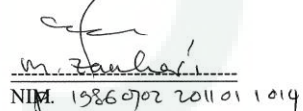 M. Zauhari
NIM. 19860702 201101 1 014